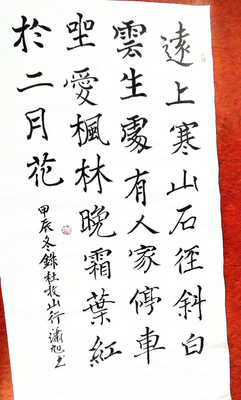 遠上寒山石徑斜白
雲生處有人家停車
坐愛楓林晚霜葉紅
於二月花
甲辰冬錄杜牧山行 瀟旭書